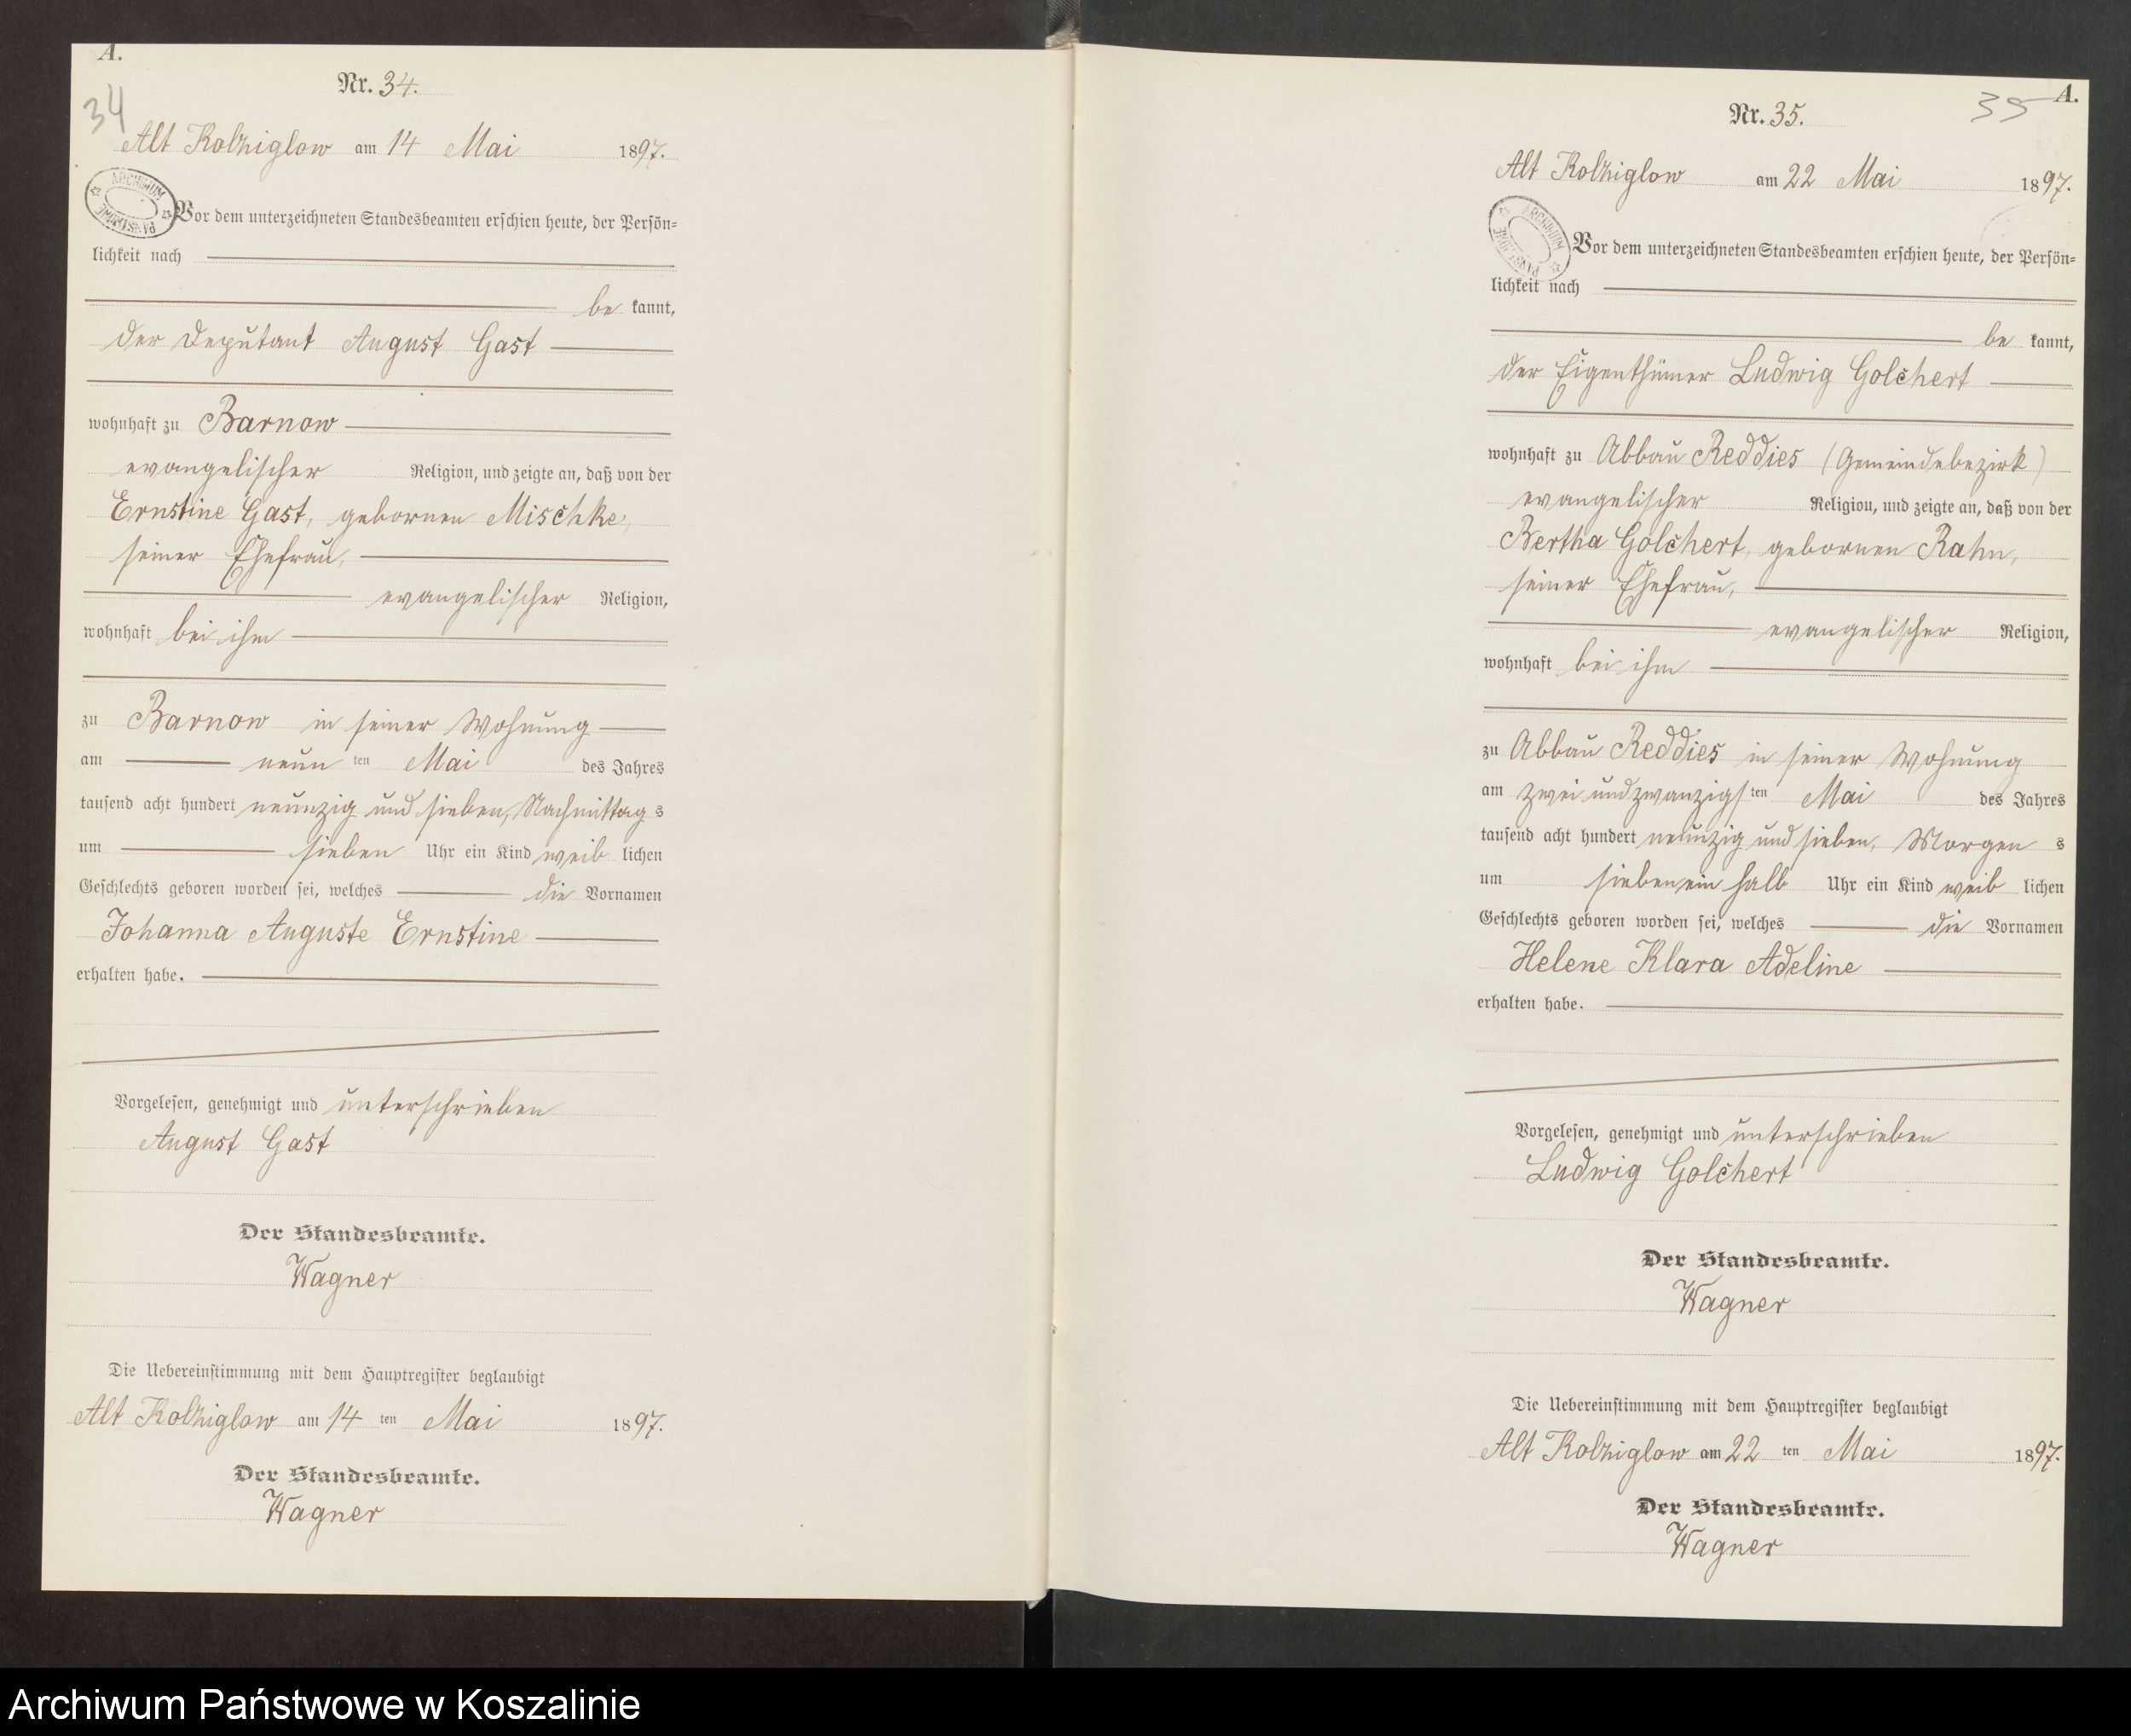 A.
34
Nr. 34.
Alt Kolziglow am 14 Mai 1897.
ARCHIWUM PAŃSTWOWE
Vor dem unterzeichneten Standesbeamten erschien heute, der Persön-
lichkeit nach
be kannt,
der Deputant August Gast
wohnhaft zu Barnow
evangelischer Religion, und zeigte an, daß von der
Ernstine Gast, gebornen Mischke,
seiner Ehefrau,
evangelischer Religion,
wohnhaft bei ihm
zu Barnow in seiner Wohnung
am neun ten Mai des Jahres
tausend acht hundert neunzig und sieben, Nachmittag s
um sieben Uhr ein Kind weib lichen
Geschlechts geboren worden sei, welches die Vornamen
Johanna Auguste Ernstine
erhalten habe.
Vorgelesen, genehmigt und unterschrieben
August Gast
Der Standesbeamte.
Wagner
Die Uebereinstimmung mit dem Hauptregister beglaubigt
Alt Kolziglow am 14 ten Mai 1897.
Der Standesbeamte.
Wagner
A.
35
Nr. 35.
Alt Kolziglow am 22 Mai 1897.
ARCHIWUM PAŃSTWOWE
Vor dem unterzeichneten Standesbeamten erschien heute, der Persön-
lichkeit nach
be kannt,
der Eigenthümer Ludwig Golchert
wohnhaft zu Abbau Reddies (Gemeindebezirk)
evangelischer Religion, und zeigte an, daß von der
Bertha Golchert, gebornen Rahn,
seiner Ehefrau,
evangelischer Religion,
wohnhaft bei ihm
zu Abbau Reddies in seiner Wohnung
am zwei und zwanzigs ten Mai des Jahres
tausend acht hundert neunzig und sieben, Morgen s
um sieben ein halb Uhr ein Kind weib lichen
Geschlechts geboren worden sei, welches die Vornamen
Helene Klara Adeline
erhalten habe.
Vorgelesen, genehmigt und unterschrieben
Ludwig Golchert
Der Standesbeamte.
Wagner
Die Uebereinstimmung mit dem Hauptregister beglaubigt
Alt Kolziglow am 22 ten Mai 1897.
Der Standesbeamte.
Wagner
Archiwum Państwowe w Koszalinie